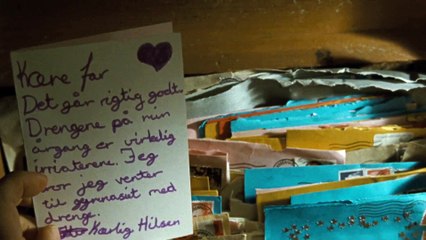 Kære far
Det går rigtig godt.
Drengene på min
årgang er virkelig
irriaterene. Jeg
tror jeg venter
til gymnasiet med
drenge.
Kærlig Hilsen